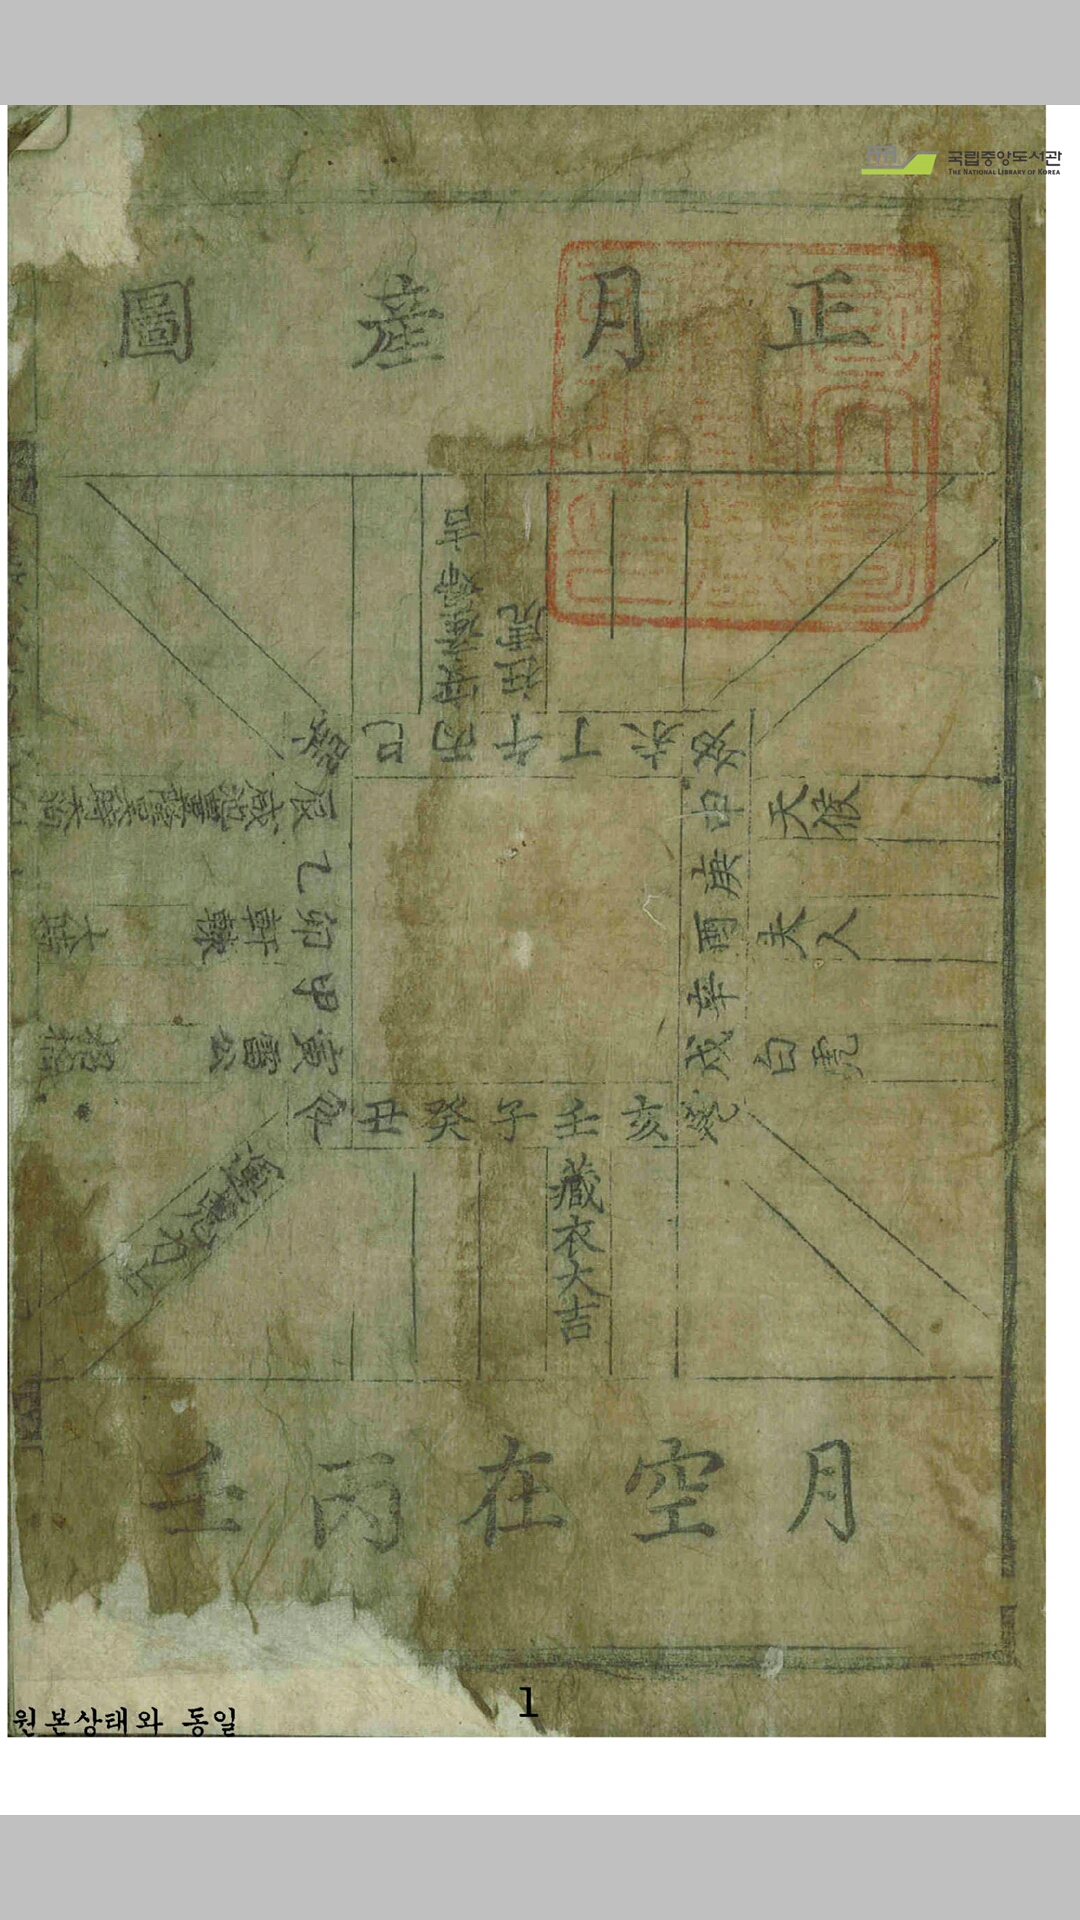 국립중앙도서관
THE NATIONAL LIBRARY OF KOREA
正月產圖
安產婦吉
狂虎
巽巳丙午丁未坤
申庚酉辛戌
天候
夫人
白虎
辰乙卯甲寅
軒轅
雷公
招搖
艮丑癸子壬亥乾
運鬼力士
藏衣大吉
月空在丙壬
원본상태와 동일
1